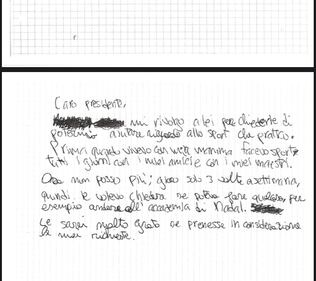 Caro presidente,
mi rivolgo a lei per chiederle di
potermi aiutare riguardo allo sport che pratico.
Prima quando vivevo con mia mamma facevo sport
tutti i giorni con i miei amici e con i miei maestri.
Ora non posso più; gioco solo 3 volte a settimana,
quindi le volevo chiedere se potevo fare qualcosa, per
esempio andare all'accademia di Nadal.
Le sarei molto grato se prenesse in considerazione
la mia richiesta.